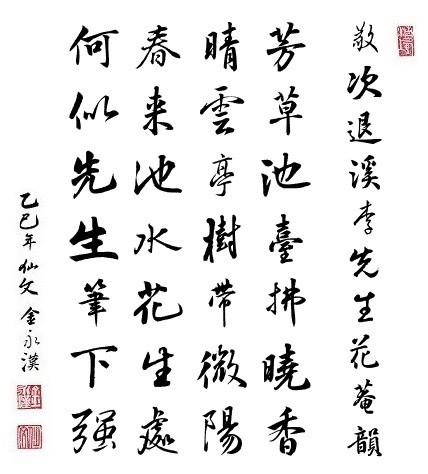 敬次退溪李先生花菴韻
芳草池臺拂曉香
晴雲亭樹帶微陽
春来池水花生處
何似先生筆下强
乙巳年 仙文 金永漢